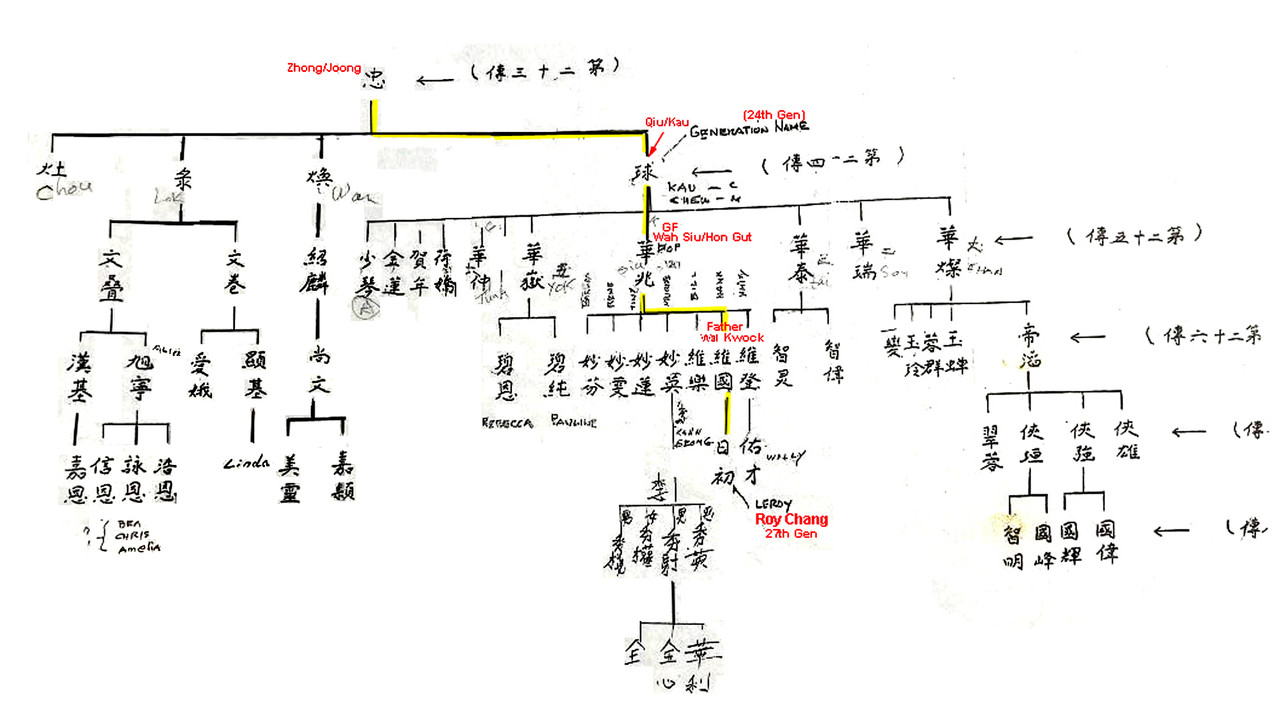 Zhong/Joong
忠 ← (傳三十二第)
Qiu/Kau
(24th Gen)
GENERATION NAME
球 ← (傳四十二第)
灶
Chou
Lok
煥
Wan
KAU - C
CHEW - M
GF
Wah Siu/Hon Gut
文疊
文卷
紹麟
少琴
金蓮
賀年
荷嬌
華仲
華嶽
YOK
華兆
華泰
Tai
華瑞
華燦
← (傳五十二第)
Father
Wai Kwock
漢基
旭寧
愛娥
顯基
尚文
碧恩
碧純
妙芬
妙雯
妙蓮
妙英
維樂
維國
維登
智灵
智偉
玉玲
蓉群
玉蟬
帝滔
← (傳六十二第
REBECCA
PAULINE
嘉恩
信恩
詠恩
浩恩
Linda
美靈
嘉穎
日初
佑才
WALLY
翠蓉
俠垣
俠強
俠雄
← (傳
? { BEA
CHRIS
AMELIA
李
LEROY
Roy Chang
27th Gen
秀英
智明
國峰
國輝
國偉
← (傳
全
全心
華利